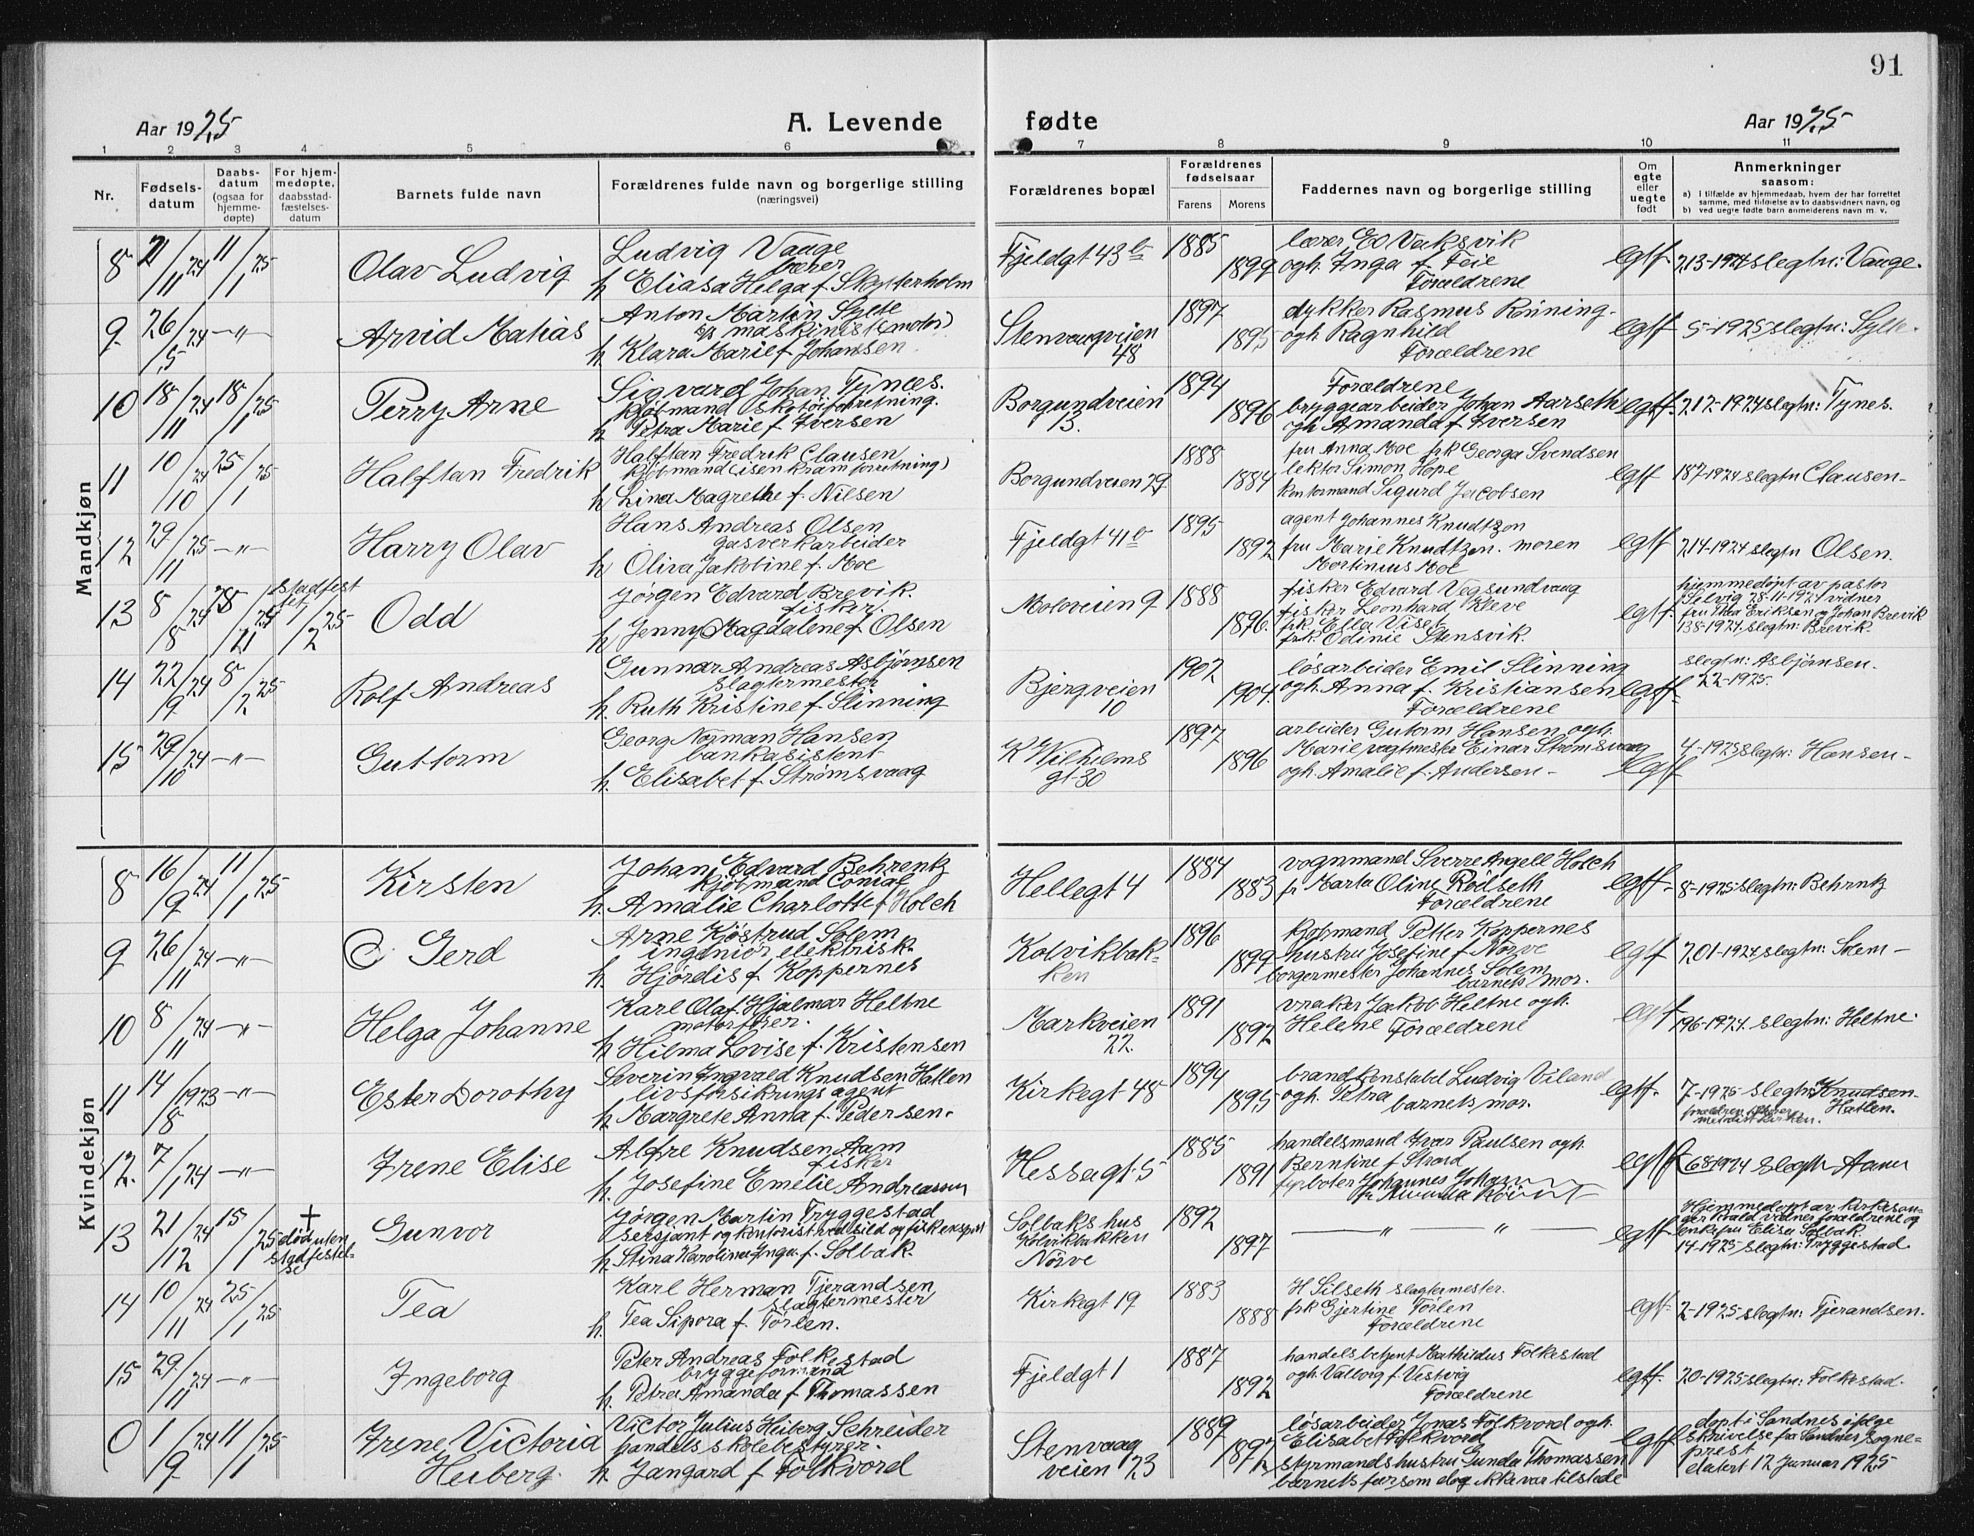 91
Aar 1925 A. Levende fødte Aar 1925
1 2 3 4 5 6 7 8 9 10 11
Nr. Fødsels-datum Daabs-datum (ogsaa for hjemme-døpte) For hjem-medøpte, daabsstad-fæstelses-datum Barnets fulde navn Forældrenes fulde navn og borgerlige stilling (næringsvei) Forældrenes bopæl Forældrenes fødselsaar Farens Morens Faddernes navn og borgerlige stilling Om egte eller uegte født Anmerkninger saasom:
a) I tilfælde av hjemmedaab, hvem der har forrettet samme, med tilføielse av to daabsvidners navn, og
b) ved uegte fødte barn anmelderens navn m. v.
Mandkjøn
8 21/11 24 11/1 25 Olav Ludvig Ludvig Vaage
lærer
h. Eliasa Helga f. Skytterholm
Fjeldgt 43 b 1885 1899 lærer Ed Vaksvik
ogh. Inga f. Feie
Forældrene
egtf. 213-1924 slegtn: Vaage.
9 26/5 24 -"- Arvid Mathias Anton Martin Sylte
maskinist (motor)
h. Klara Marie f. Johansen
Stenvaagveien 48 1897 1895 dykker Rasmus Rønning-
ogh. Ragnhild
Forældrene
egtf 5-1925 slegtn: Sylte.
10 18/11 24 18/1 25 Perry Arne Sigvard Johan Tynes.
kjøbmand skotøiforretning.
h. Petra Marie f. Iversen
Borgundveien 13. 1894 1896 Forældrene
bryggearbeider Johan Aarseth
ogh. Amanda f. Iversen
egtf. 212-1924 slegtn: Tynes.
11 10/10 24 25/1 25 Halftan Fredrik Halftan Fredrik Clausen
kjøbmand (isenkram forretning)
h. Lina Magrethe f. Nilsen
Borgundveien 29 1888 1884 fru Anna Moe frk Georga Svendsen
lektor Simon Hope
kontormand Sigurd Jacobsen
egtf 187-1924 slegtn Clausen-
12 29/11 25 -"- Harry Olav Hans Andreas Olsen
gasverkarbeider
h. Oliva Jakobine f. Moe
Fjeldgt 41 b 1895 1892 agent Johannes Knudtzon
fru Marie Knudtzon. moren
Martinius Moe
egtf 214-1924 slegtn Olsen.
13 8/8 24 28/11 24 stadfestet 1/2 25 Odd Jørgen Edvard Brevik.
fisker.
h. Jenny Magdalene f. Olsen
Moloveien 9 1888 1896. fisker Edvard Vegsundvaag
fisker Leonhard Kleve
frk. Ella Viset
frk. Odinie Stensvik.
egtf. hjemmedøpt av pastor
Selvig 28-11-1924 vidner
fru Thea Eriksen og Johan Brevik
138-1924 slegtn: Brevik.
14 22/9 24 8/2 25 Rolf Andreas Gunnar Andreas Asbjørnsen
slagtermester
h. Ruth Kristine f. Slinning
Bjergveien 10 1902 1904. løsarbeider Emil Slinning
ogh. Anna f. Kristiansen
Forældrene
egtf- slegtn: Asbjørnsen.
22-1925.
15 29/10 24 -"- Guttorm Georg Norman Hansen
bankasistent
h. Elisabet f. Strømsvaag
K Wilhelms gt 30 1897 1896 arbeider Gutorm Hansen ogh.
Marie vagtmester Einar Strømsvaag
ogh. Amalie f. Andersen-
egtf 4-1925 slegtn: Hansen-
Kvindekjøn
8 16/9 24 11/1 25 Kirsten Johan Edvard Behrentz
kjøbmand
h. Amalie Charlotte f Holch
Hellegt 4 1884 1883 vognmand Sverre Angell Holch
fr Marta Oline Rødseth
Forældrene
egtf. 8-1925 slegtn: Behrntz
9 26/11 24 -"- Gerd Arne Kjøstrud Solem
ingeniør elektrisk.
h. Hjørdis f. Koppernes
Kolvikbakken 1896 1899 kjøbmand Petter Koppernes
hustru Josefine f Nørve
borgermester Johannes Solem
barnets mor.
egtf 201-1924 slegtn: Solem-
10 8/11 24 -"- Helga Johanne Karl Olaf Hjalmar Heltne
motorfører.
h. Hilma Lovise f. Kristensen
Markveien 22. 1891 1892 vraker Jakob Heltne ogh.
Helene Forældrene
egtf 196-1924. slegtn: Heltne.
11 14/8 1923 -"- Ester Dorothy Severin Ingvald Knudsen Hatlen
livsforsikrings agent
h. Margrete Anna f. Pedersen.
Kirkegt 48 1894 1895 brandkonstabel Ludvig Viland
ogh. Petra
barnets mor.
egtf. 7-1925 slegtn: Knudsen-
Hatlen.
metodistkirken.
12. 7/1 24 -"- Irene Elise Alfre Knudsen Aam
fisker
h. Josefine Emelie Andreassen
Hessagt 5 1885 1891 handelsmand Ivar Paulsen ogh.
Berntine f Strand
fyrbøter Johannes
egtf 68-1924 slegtn Aam
13 21/12 24 15/1 25 + død uten stadfestelse Gunvor Jørgen Martin Tryggestad
sersjant og kontorist ved sild og fiskeksport
h. Stina Karoline Inga f. Solbak.
Solbaks hus
Kolvikbakken
Nørve
1892 1897 -"- -"- egtf Hjemmedøpt av kirkesan-
ger Kvald vidner forældrene og
enkefru Elise Solbak.
14-1925 slegtn: Tryggestad
14 10/11 24 25/1 25 Tea Karl Herman Tjerandsen
slagtermester
h. Tea Sipora f. Tørlen.
Kirkegt 19 1883 1888 H Silseth slagtermester.
frk Gjertine Tørlen
Forældrene
egtf 2-1925 slegtn: Tjerandsen.
15 29/11 24 -"- Ingeborg Peter Andreas Folkestad
bryggeformand
h. Petra Amanda f Thomassen
Fjeldgt 1 1887 1892 handelsbetjent Mathildus Folkestad
ogh. Valborg f. Vestvig
Forældrene
egtf. 20-1925 slegtn: Folkestad.
0 1/9 24 11/1 25 Irene Victoria Heiberg. Victor Julius Heiberg Schreider
handelsskolebestyrer.
h. Jangard f Folkvord
Stenvaagveien 23 1889 1892 løsarbeider Jonas Folkvord ogh.
Elisabet Folkvord
styrmands hustru Gunda Thomassen
barnets far, som dog ikke var tilstede
egtf døpt i Sandnes ifølge
skrivelse fra Sandnes sogne-
prest
datert 12 januar 1925